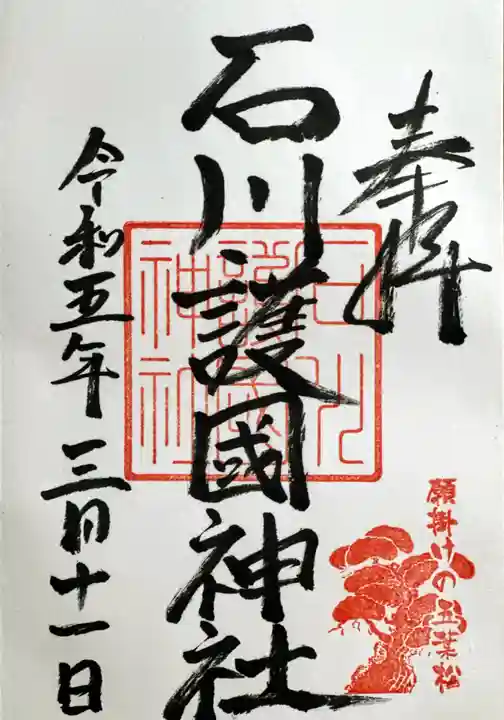 奉拝
石川護國神社
令和五年三月十一日
石川護國神社
願掛けの五葉松